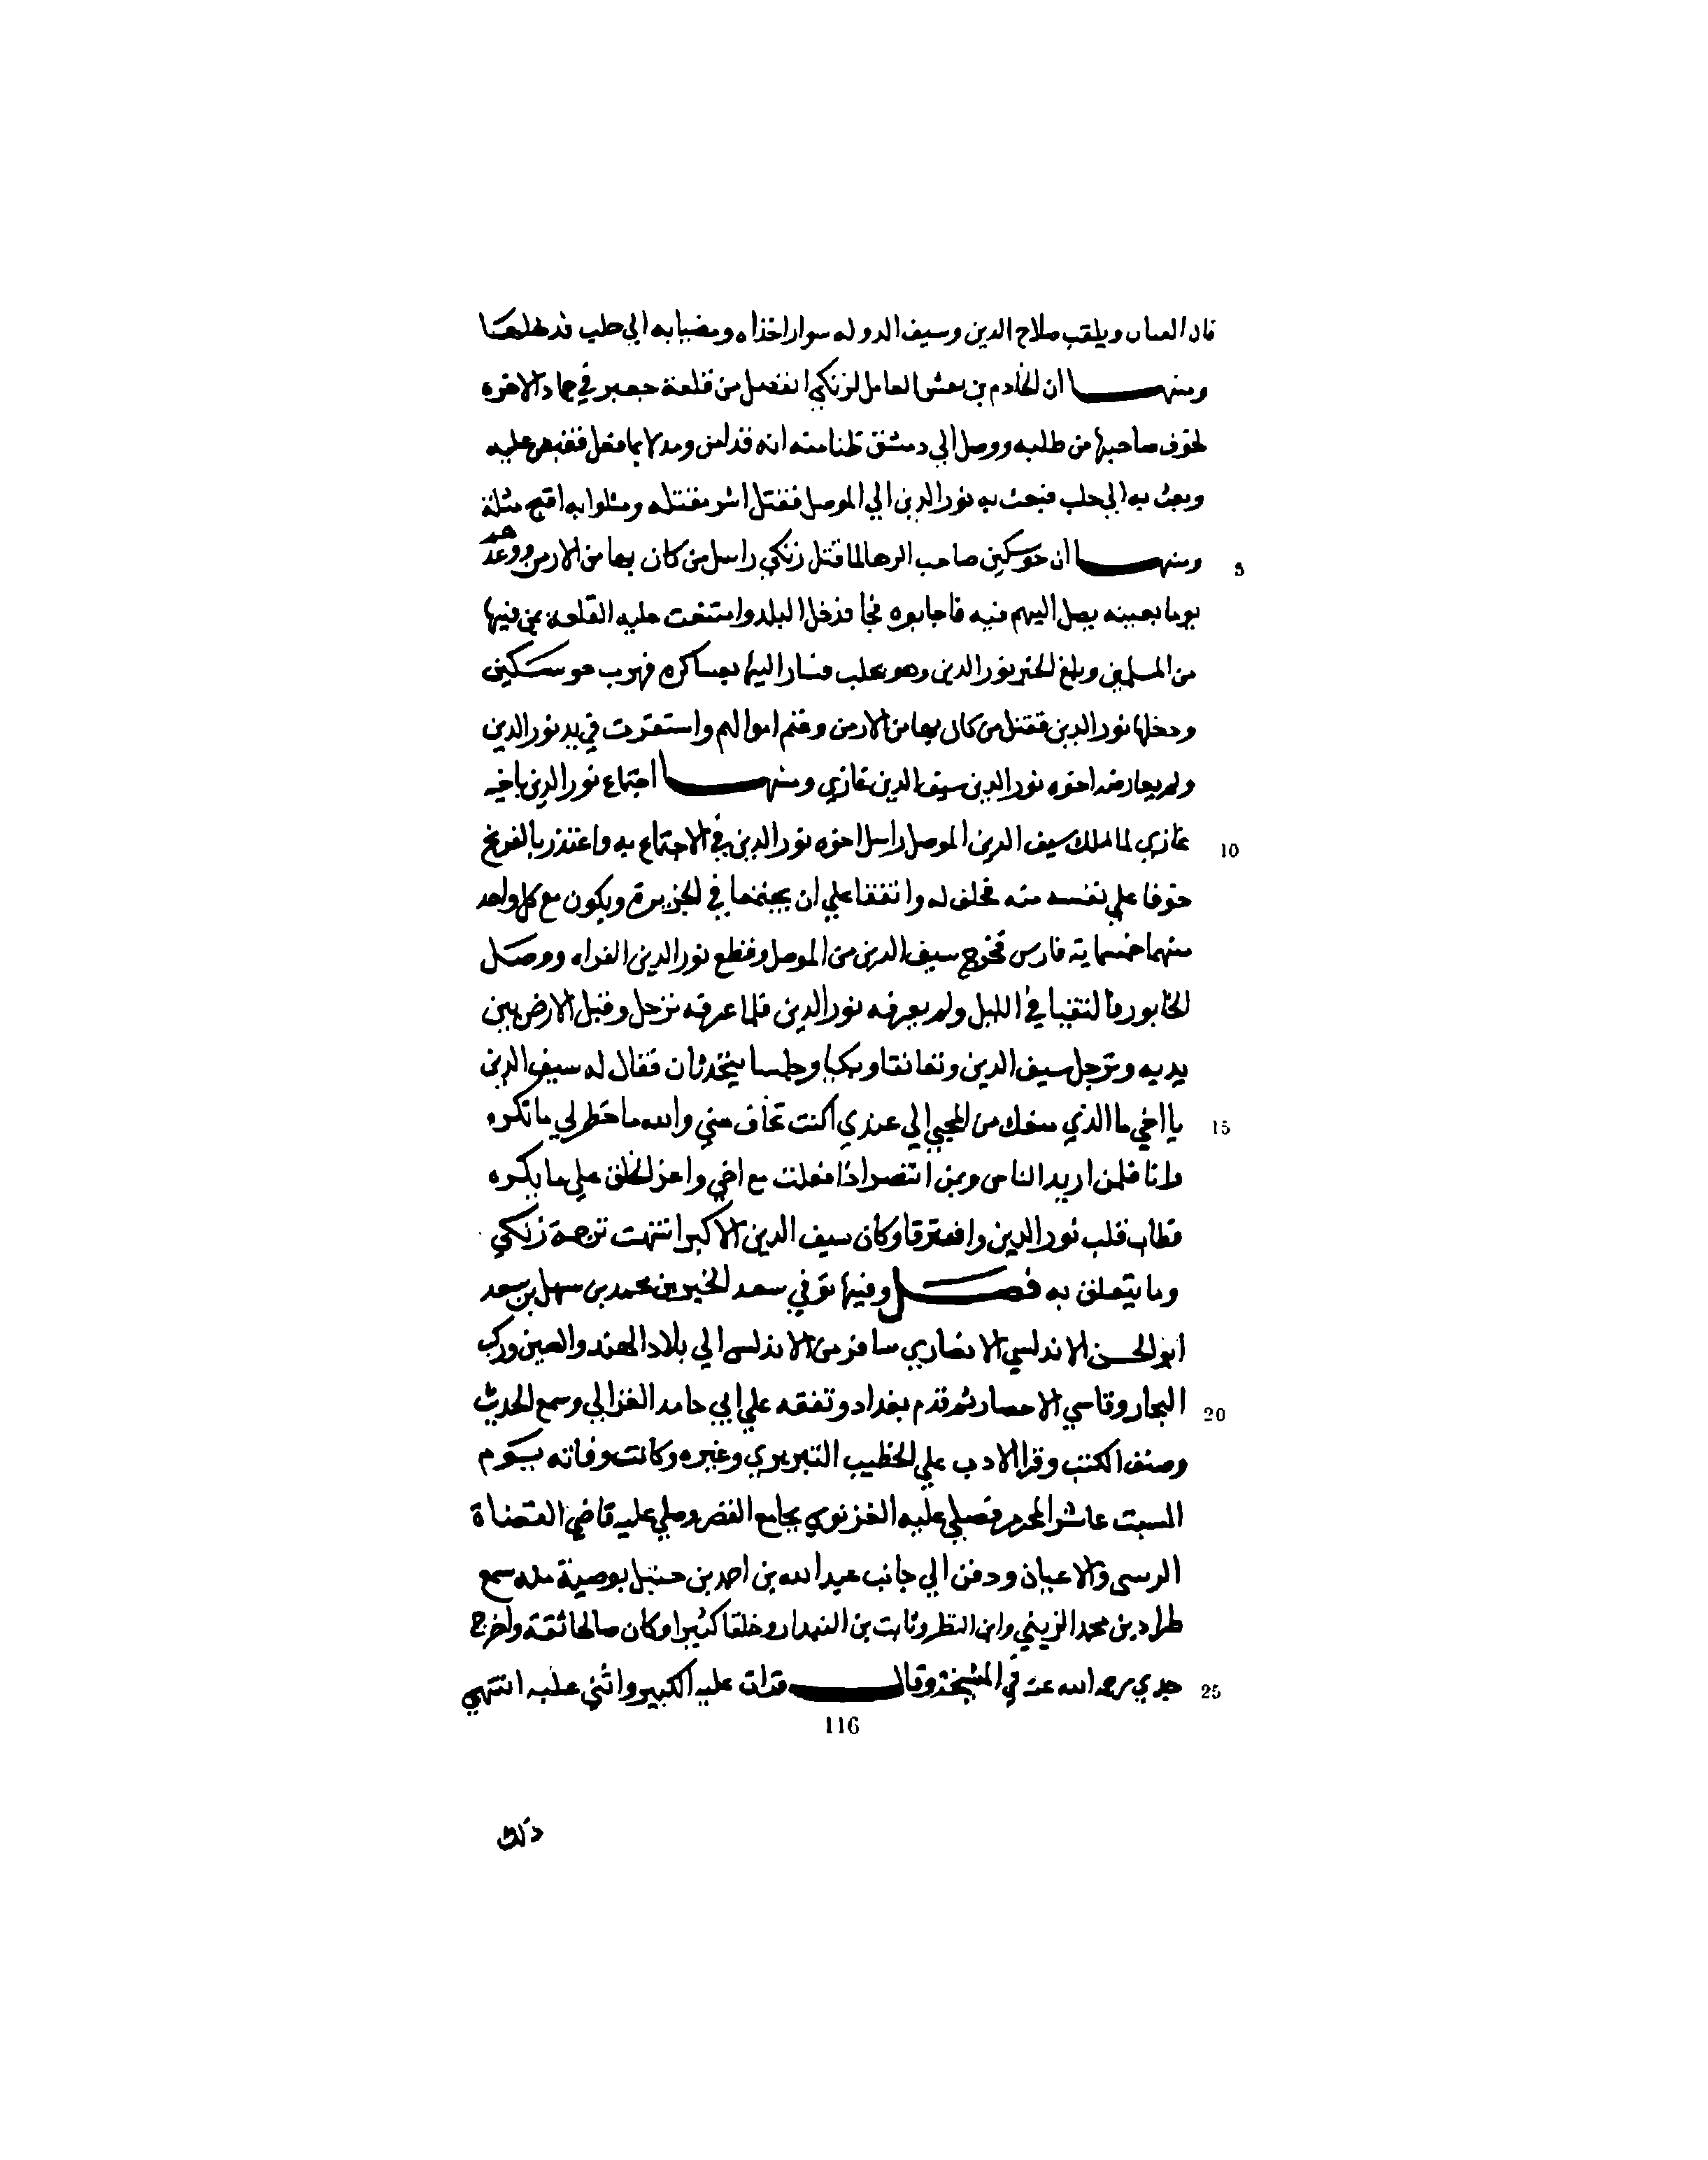 ويلقب صلاح الدين وسيف الدوله سوار اخذاه ومضيا به الي حلب
ومنها ان الخادم بن العامل لزنكي انفصل من قلعة جعبر في جماد الاخره
لخوف صاحبها من طلبه ووصل الي دمشق ظنا منه انه قد امن ومدلا بما فعل فقبض عليه
وبعث به الي حلب فبعث به نور الدين الي الموصل فقتل اشر مقتله ومثلوا به اقبح مثلة
5 ومنها ان جوسكين صاحب الرها لما قتل زنكي راسل من كان بها من الارمن ووعدهم
يوما بعينه يصل اليهم فيه فاجابوه فجا فدخل البلد وامتنعت عليه القلعة بمن فيها
من المسلمين وبلغ الخبر نور الدين وهو بحلب فسار اليها بعساكره فهرب جوسكين
ودخلها نور الدين فقتل من كان بها من الارمن وغنم اموالهم واستقرت في يد نور الدين
ولم يعارضه اخوه نور الدين سيف الدين غازي ومنها اجتماع نور الدين باخيه
10 غازي لما ملك سيف الدين الموصل راسل اخوه نور الدين في الاجتماع به واعتذر بالفرنج
خوفا علي نفسه منه فحلف له واتفقا علي ان يجتمعا في الجزيرة ويكون مع كل واحد
منهما خمسماية فارس فخرج سيف الدين من الموصل وقطع نور الدين الفراه ووصل
الخابور فالتقيا في الليل ولم يعرفه نور الدين فلما عرفه ترجل وقبل الارض بين
يديه وترجل سيف الدين وتعانقا وبكيا وجلسا يتحدثان فقال له سيف الدين
15 يا اخي ما الذي منعك من المجي الي عندي اكنت تخاف مني والله ما خطر لي ما تكره
وانا فلمن اريد الناس وبمن انتصر اذا فعلت مع اخي واعز الخلق علي ما يكره
فطاب قلب نور الدين وافترقا وكان سيف الدين الاكبر انتهت ترجمة زنكي
وما يتعلق به فصل وفيها توفي سعد الخير بن محمد بن سهل بن سعد
ابو الحسن الاندلسي الانصاري سافر من الاندلس الي بلاد الهند والصين وركب
20 البحار وقاسي الاحصار ثم قدم بغداد وتفقه علي ابي حامد الغزالي وسمع الحديث
وصنف الكتب وقرا الادب علي الخطيب التبريري وغيره وكانت وفاته يوم
السبت عاشر المحرم فصلي عليه الغزنوي بجامع القصر وصلي عليه قاضي القضاة
والاعيان ودفن الي جانب عبد الله بن احمد بن حنبل بوصية منه سمع
طراد بن محمد الزينبي وابن البطر وثابت بن البندار وخلقا كثيرا وكان صالحا ثقة واخرج
25 جدي رحمه الله عنه في المشيخة وقال قرات عليه الكبير واثني عليه انتهي
116
ذلك